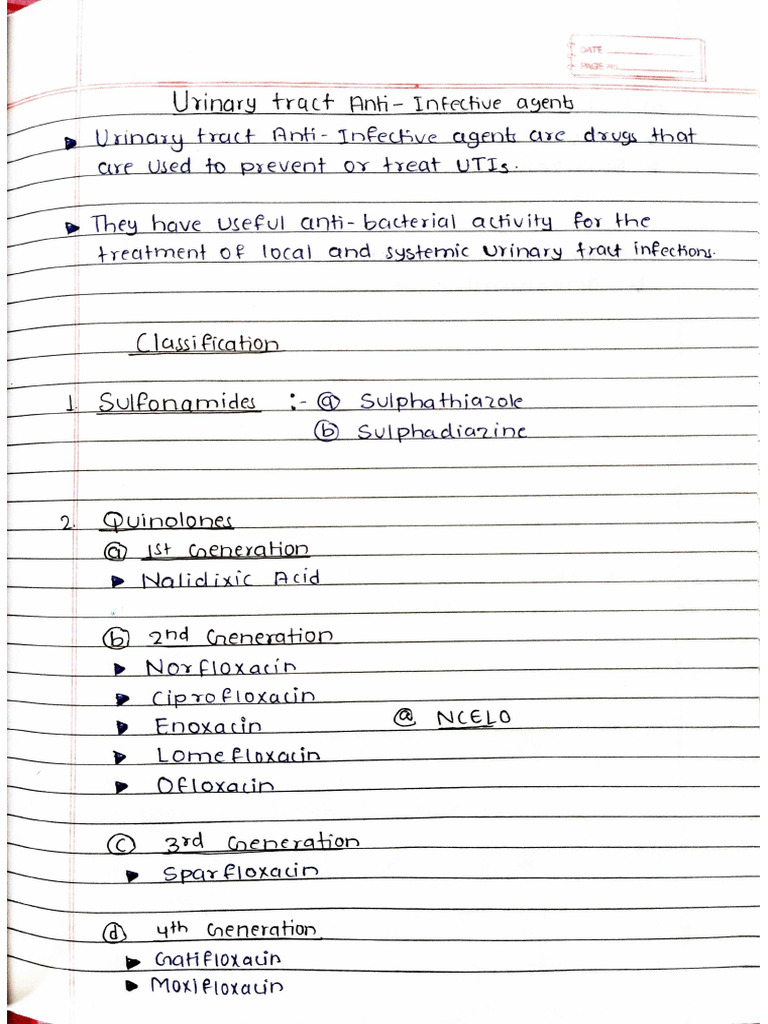 DATE
PAGE NO.
Urinary tract Anti-Infective agents
Urinary tract Anti-Infective agents are drugs that
are used to prevent or treat UTIs.
They have useful anti-bacterial activity for the
treatment of local and systemic urinary tract infections.
Classification
1. Sulfonamides :- ⓐ Sulphathiazole
ⓑ Sulphadiazine
2. Quinolones
ⓐ 1st Generation
Nalidixic Acid
ⓑ 2nd Generation
Norfloxacin
Ciprofloxacin
Enoxacin @ NCELO
Lomefloxacin
Ofloxacin
ⓒ 3rd Generation
Sparfloxacin
ⓓ 4th Generation
Gatifloxacin
Moxifloxacin